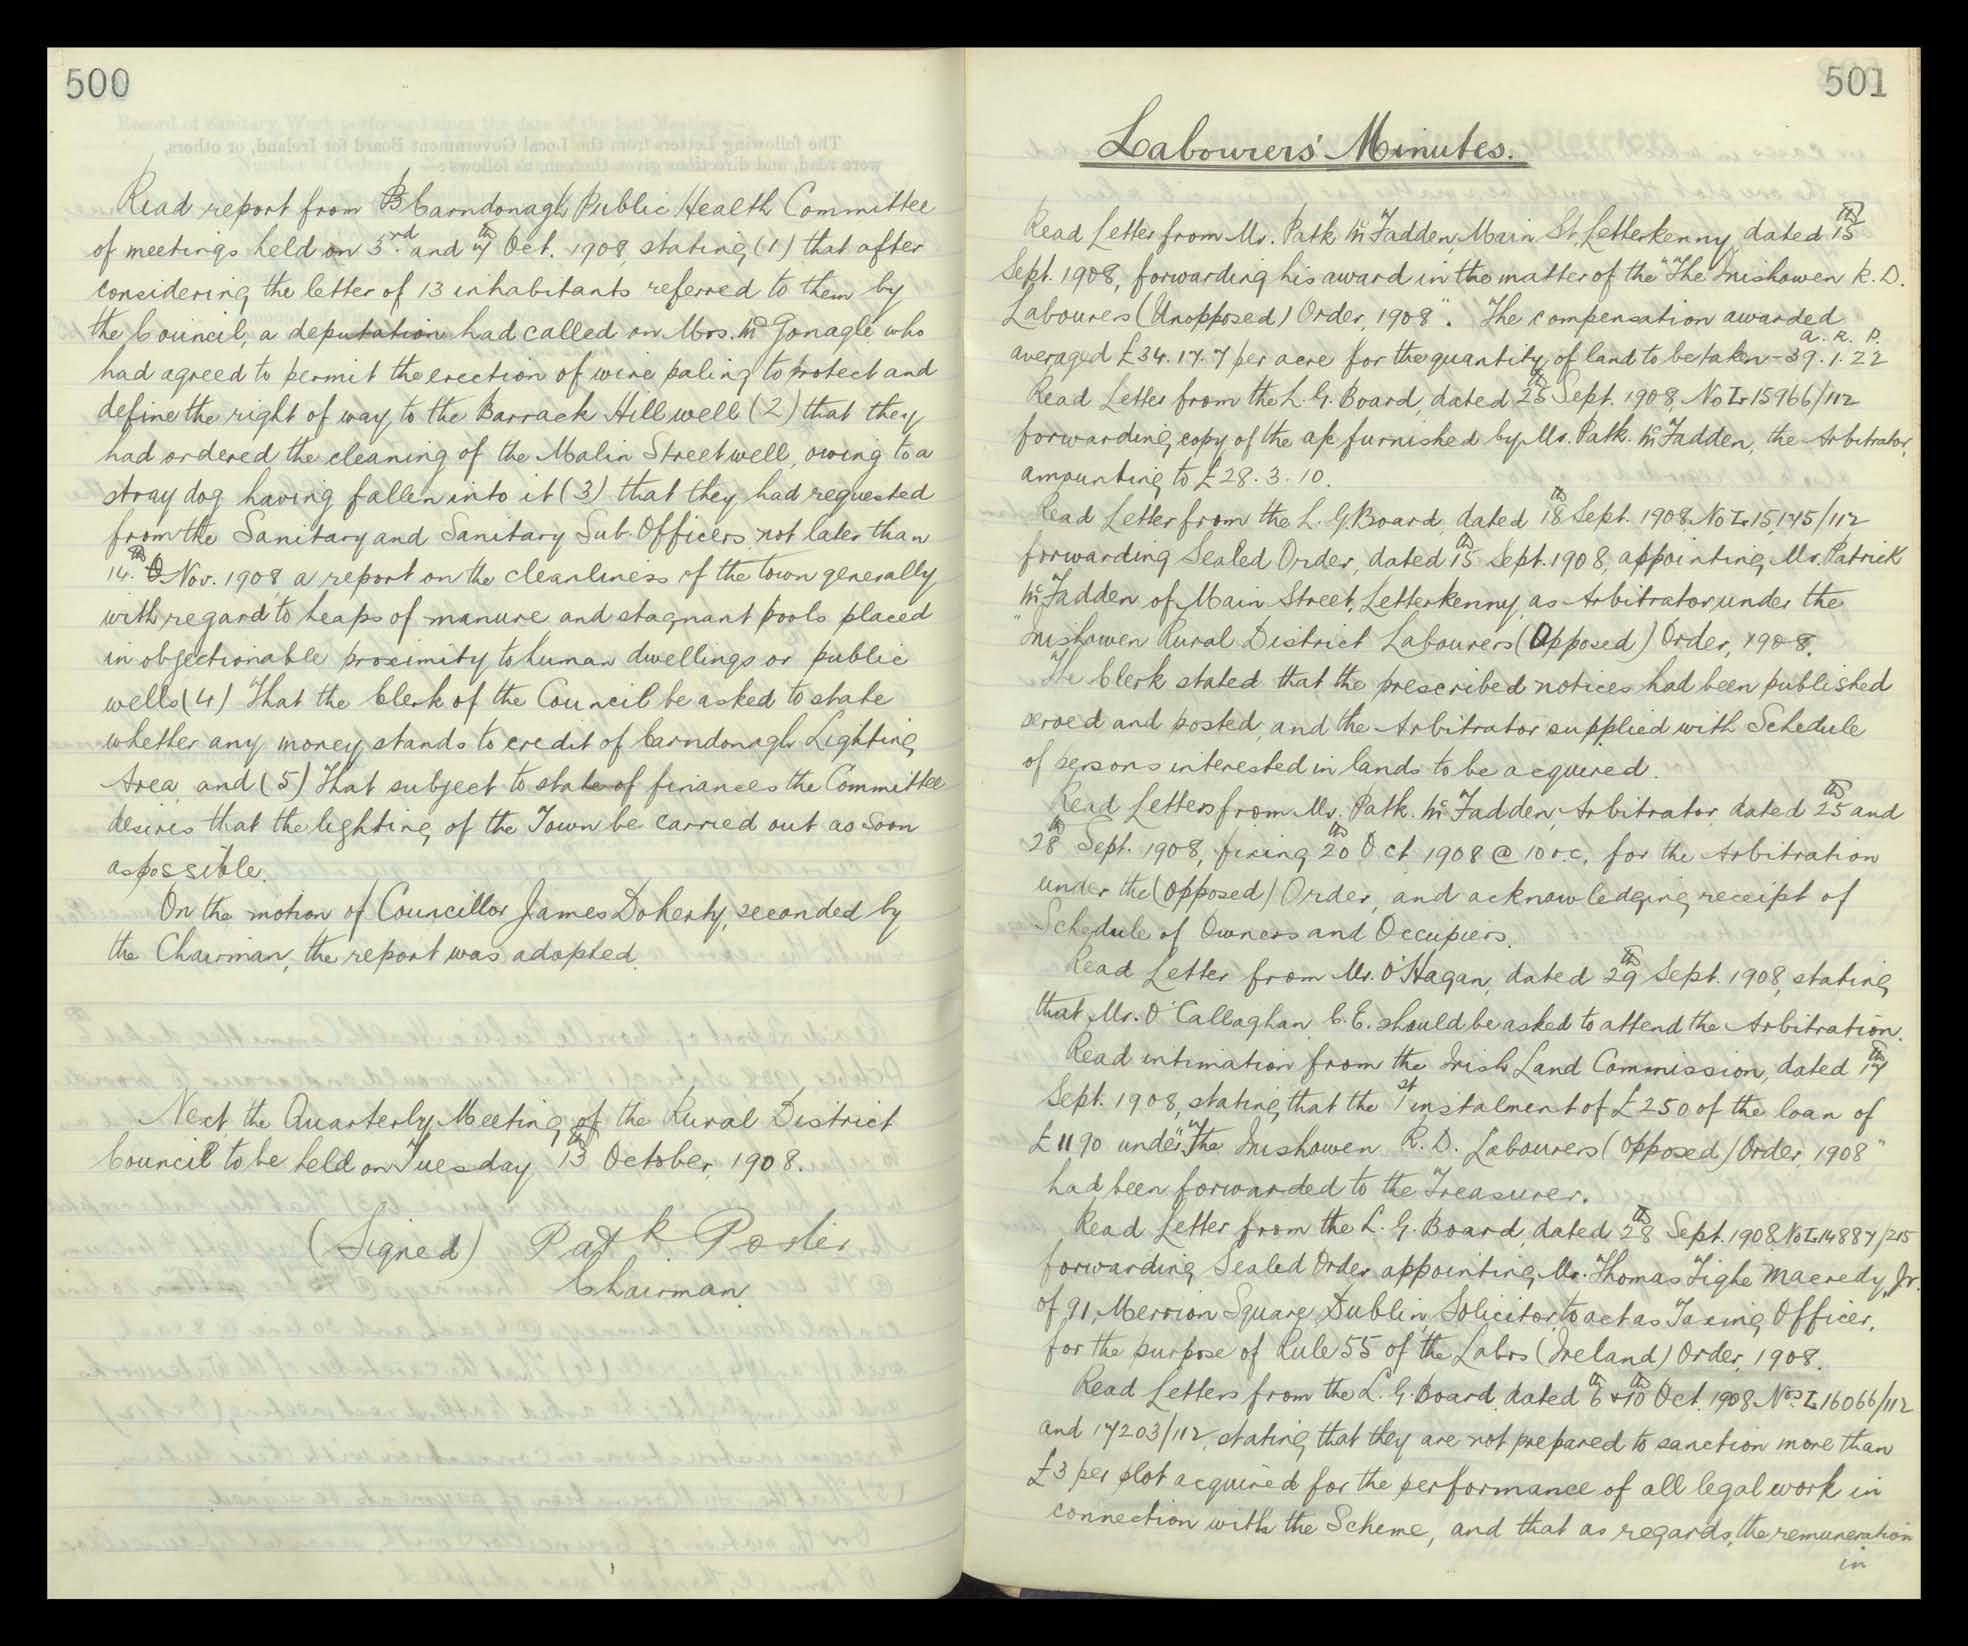 500
Read report from Carndonagh Public Health Committee
of meetings held on 3rd and 7th Oct. 1908, stating (1) that after
considering the letter of 13 inhabitants referred to them by
the Council, a deputation had called on Mrs. McGonagle who
had agreed to permit the erection of wire paling to protect and
define the right of way to the Barrack Hill well (2) that they
had ordered the cleaning of the Malin Street well, owing to a
stray dog having fallen into it (3) that they had requested
from the Sanitary and Sanitary Sub-Officers not later than
14th Nov. 1908 a report on the cleanliness of the town generally
with regard to heaps of manure and stagnant pools placed
in objectionable proximity to human dwellings or public
wells (4) That the Clerk of the Council be asked to state
whether any money stands to credit of Carndonagh Lighting
Area and (5) That subject to state of finances the Committee
desires that the lighting of the Town be carried out as soon
as possible.
On the motion of Councillor James Doherty, seconded by
the Chairman, the report was adopted.
Next the Quarterly Meeting of the Rural District
Council to be held on Tuesday 13th October, 1908.
(Signed) Patk. Porter
Chairman.
501
Labourers' Minutes.
Read Letter from Mr. Patk McFadden, Main St, Letterkenny, dated 15th
Sept. 1908, forwarding his award in the matter of the "The Inishowen R.D.
Labourers (Unopposed) Order, 1908". The compensation awarded
a. r. p.
averaged £34.17.7 per acre for the quantity of land to be taken - 39. 1. 22
Read Letter from the L.G. Board, dated 25th Sept. 1908, No L 15966/112
forwarding copy of the a/c furnished by Mr. Patk. McFadden, the Arbitrator,
amounting to £28.3.10.
Read Letter from the L.G. Board, dated 18th Sept. 1908 No L 15,175/112
forwarding Sealed Order, dated 15th Sept. 1908, appointing Mr. Patrick
McFadden of Main Street, Letterkenny, as Arbitrator under the
"Inishowen Rural District Labourers (Opposed) Order, 1908.
The Clerk stated that the prescribed notices had been published
served and posted, and the Arbitrator supplied with Schedule
of persons interested in lands to be acquired.
Read Letters from Mr. Patk. McFadden, Arbitrator, dated 25th and
28th Sept. 1908, fixing 20th Oct 1908 @ 10 o.c. for the Arbitration
under the (opposed) Order, and acknowledging receipt of
Schedule of Owners and Occupiers.
Read Letter from Mr. O'Hagan, dated 29th Sept. 1908, stating
that Mr. O'Callaghan C.E. should be asked to attend the Arbitration.
Read intimation from the Irish Land Commission, dated 17th
Sept. 1908, stating that the 1st instalment of £250 of the loan of
£1190 under "The Inishowen R.D. Labourers (Opposed) Order, 1908"
had been forwarded to the Treasurer.
Read Letter from the L.G. Board, dated 28th Sept. 1908 No L 14887/215
forwarding Sealed Order appointing Mr. Thomas Tighe Macredy, Jr.
of 91, Merrion Square Dublin, Solicitor, to act as Taxing Officer,
for the purpose of Rule 55 of the Labrs (Ireland) Order, 1908.
Read Letters from the L.G. Board, dated 6th & 10th Oct. 1908 Nos. L 16066/112
and 17203/112, stating that they are not prepared to sanction more than
£3 per plot acquired for the performance of all legal work in
connection with the Scheme, and that as regards, the remuneration
in